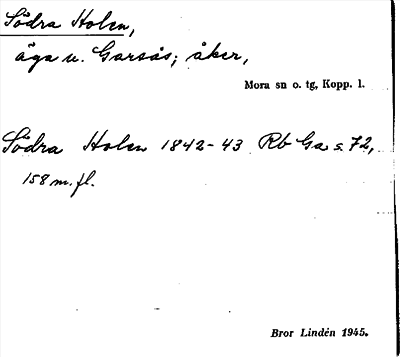 Södra Holen,
äga u. Garsås; åker,
Mora sn o. tg, Kopp. l.
Södra Holen 1842-43 Rb Ga s. 72,
158 m. fl.
Bror Lindén 1945.